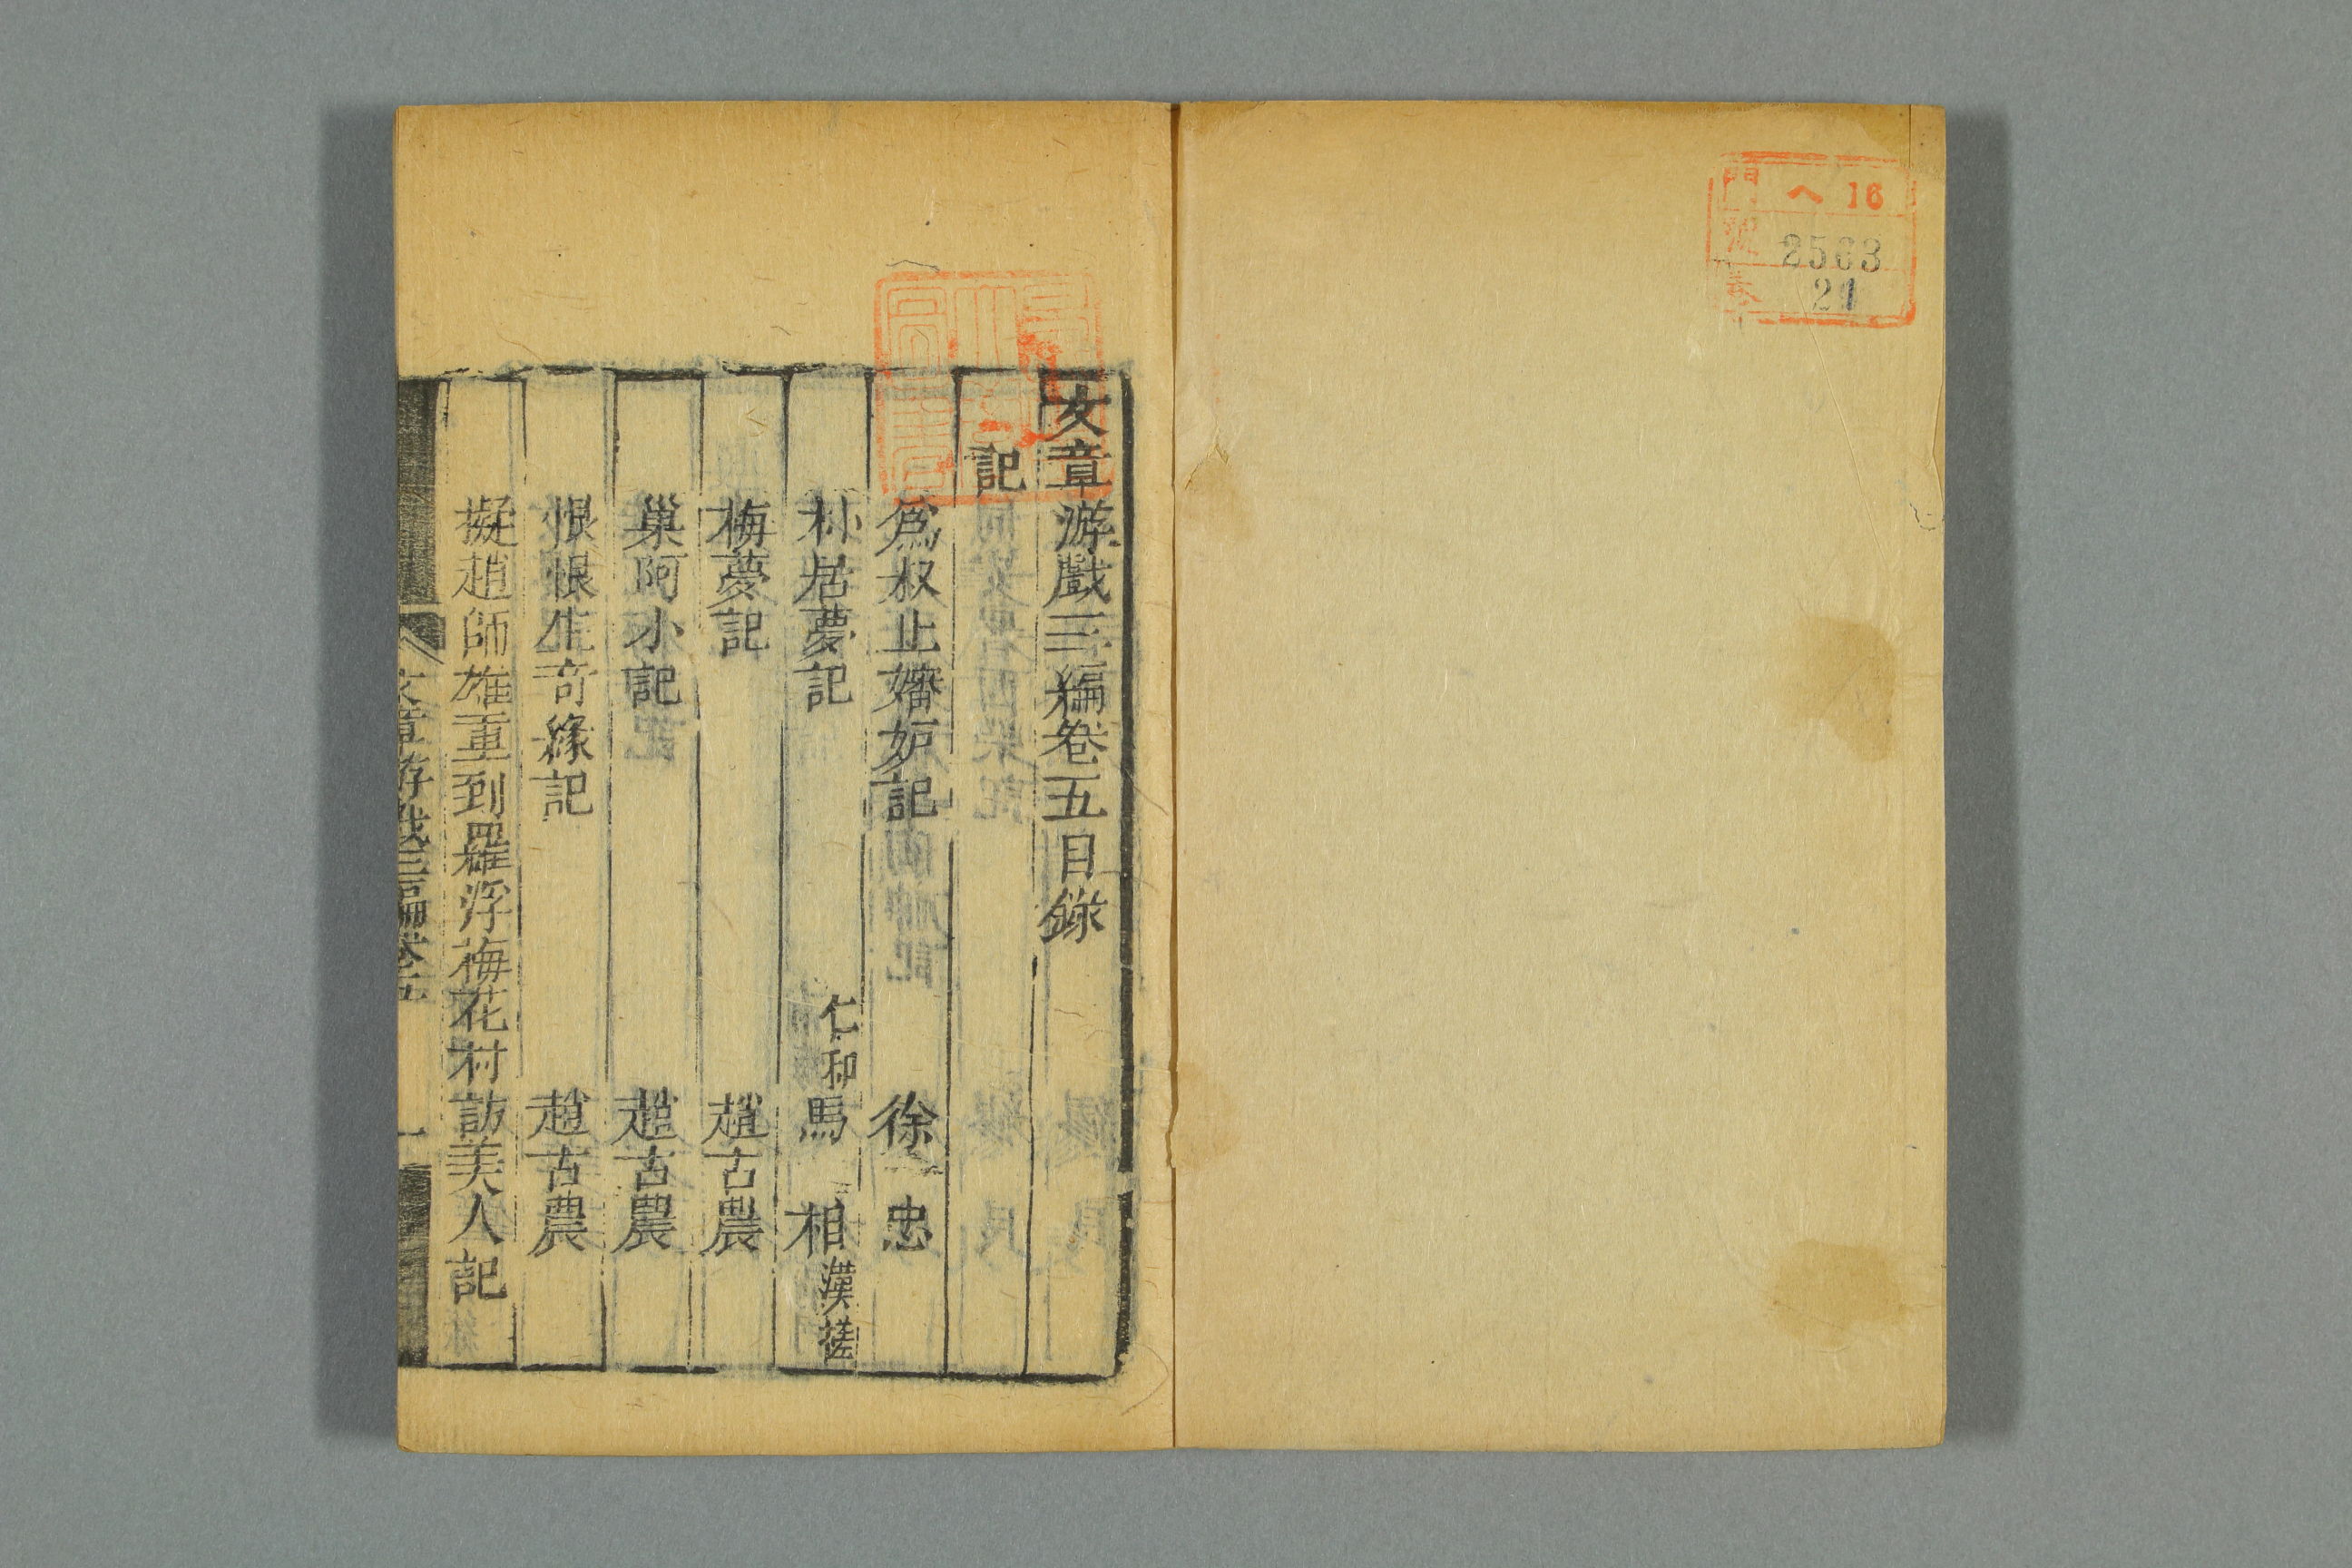 門 ヘ 16
號 2563
卷 21
文章游戲三編卷五目錄
記
爲叔止嬸妒記 徐忠
朴居夢記 仁和馬相漢槎
梅夢記 趙古農
巢阿小記 趙古農
恨恨生奇緣記 趙古農
擬趙師雄重到羅浮梅花村訪美人記
文章游戲三編卷五 一